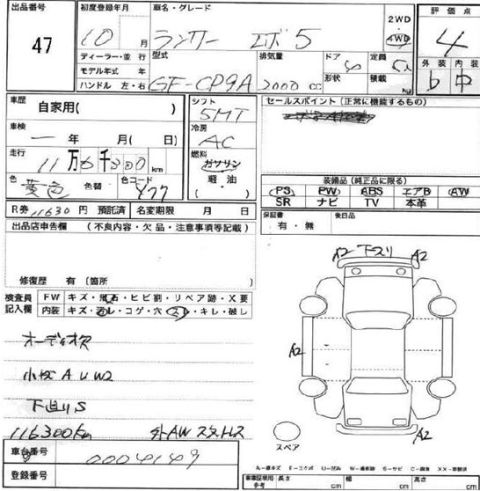 出品番号 47
初度登録年月 10 月
車名・グレード ランサー エボ5
2WD 4WD
評価点 4
ディーラー・並行
モデル年式 年
ハンドル 左・右
型式 GF-CP9A
排気量 2000 cc
ドア
形状
定員
積載 kg
外装 内装
b 中
車歴 自家用( )
車検 ー 年 月( )
走行 11万6千300 km
色 黄色 色替 色コード Y77
シフト 5MT
冷房 AC
燃料 ガソリン 軽油
セールスポイント(正常に機能するもの)
装備品(純品に限る)
PS PW ABS エアB AW
SR ナビ TV 本革
R券 11630 円 預託済 名変期限 月 日
保証書 有・無
後日品
出品店申告欄 (不良内容・欠品・注意事項等記載)
修復歴 有 (箇所
検査員記入欄
FW キズ・飛石・ヒビ割・リペア跡・X要
内装 キズ・汚レ・コゲ・穴・スレ・キレ・破レ
オーディオ欠
小キズ A U W2
下廻りS
116300Km 社外AW スタッドレス
A2 下スリ A2
A2
A2
スペア
車台番号 0004149
登録番号
A-線キズ
車庫証明用参考 長さ cm 幅 cm 高さ cm